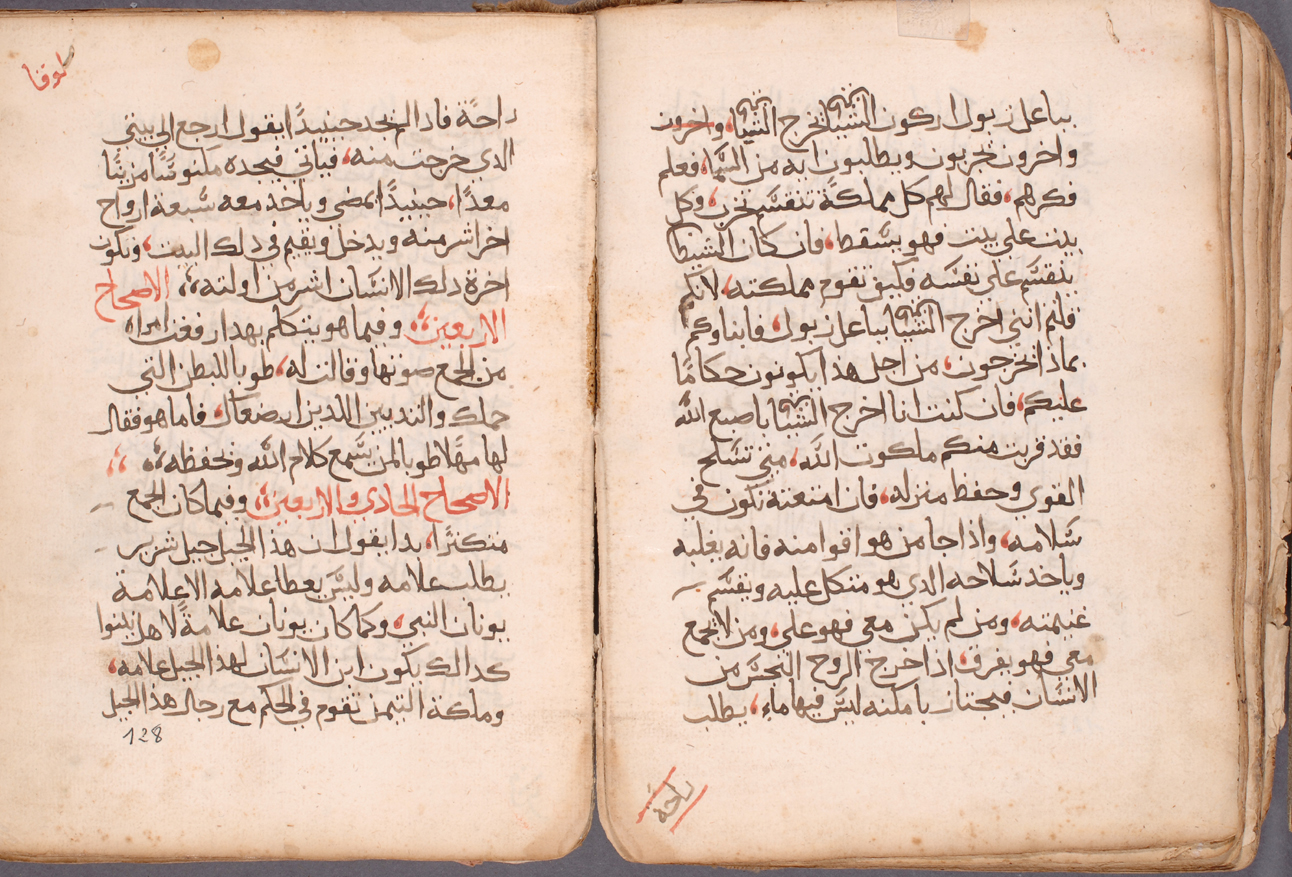 بباعل زبول اركون الشياطين نخرج الشياطين، واخرون
واخرون يجربون ويطلبون ايه من السما، فعلم
فكرهم، فقال لهم كل مملكة تنقسم تخرب، وكل
بيت علي بيت فهو يسقط، فان كان الشيطان
ينقسم علي نفسه فكيف تقوم مملكته، لانكم
قلتم انني اخرج الشياطين بباعل زبول، فابناوكم
بماذا يخرجون، من اجل هذا يكونون حكامًا
عليكم، فان كنت انا اخرج الشياطين باصبع الله
فقد قربت منكم ملكوت الله، متي تسلح
القوي وحفظ منزله، فان امتعته تكون في
سلامه، واذا جا من هو اقوا منه فانه يغلبه
وياخد سلاحه الدي هو متكل عليه ويقسم
غنيمته، ومن لم يكن معي فهو علي، ومن لا يجمع
معي فهو يفرق، ادا خرج الروح النجس من
الانسان فيجتاز بامكنه ليس فيها ماء، يطلب
راحة
لوقا
راحةً فادا لم يجد حينيدًا يقول ارجع الي بيتي
الدي خرجت منه، فياتي فيجده مكنوسًا مزينًا
معدًا، حينيدًا يمضي وياخد معه سبعة ارواح
اخر اشر منه ويدخل ويقيم في دلك البيت، وتكون
اخرة دلك الانسان اشر من اولته، الاصحاح
الاربعين، وفيما هو يتكلم بهدا رفعت امراه
من الجمع صوتها وقالت له، طوبا للبطن التي
حملك والتديين اللدين ارضعاك، فاما هو فقال
لها مهلا طوبا لمن يسمع كلام الله ويحفظه،
الاصحاح الحادي والاربعين، وفيما كان الجمع
متكترًا، بدا يقول ان هدا الجيل جيل شرير
يطلب علامه وليس يعطا علامه الا علامة
يونان النبي، وكما كان يونان علامةً لاهل نينوا
كدالك يكون ابن الانسان لهدا الجيل علامه،
وملكة التيمن تقوم في الحكم مع رجال هدا الجيل
128